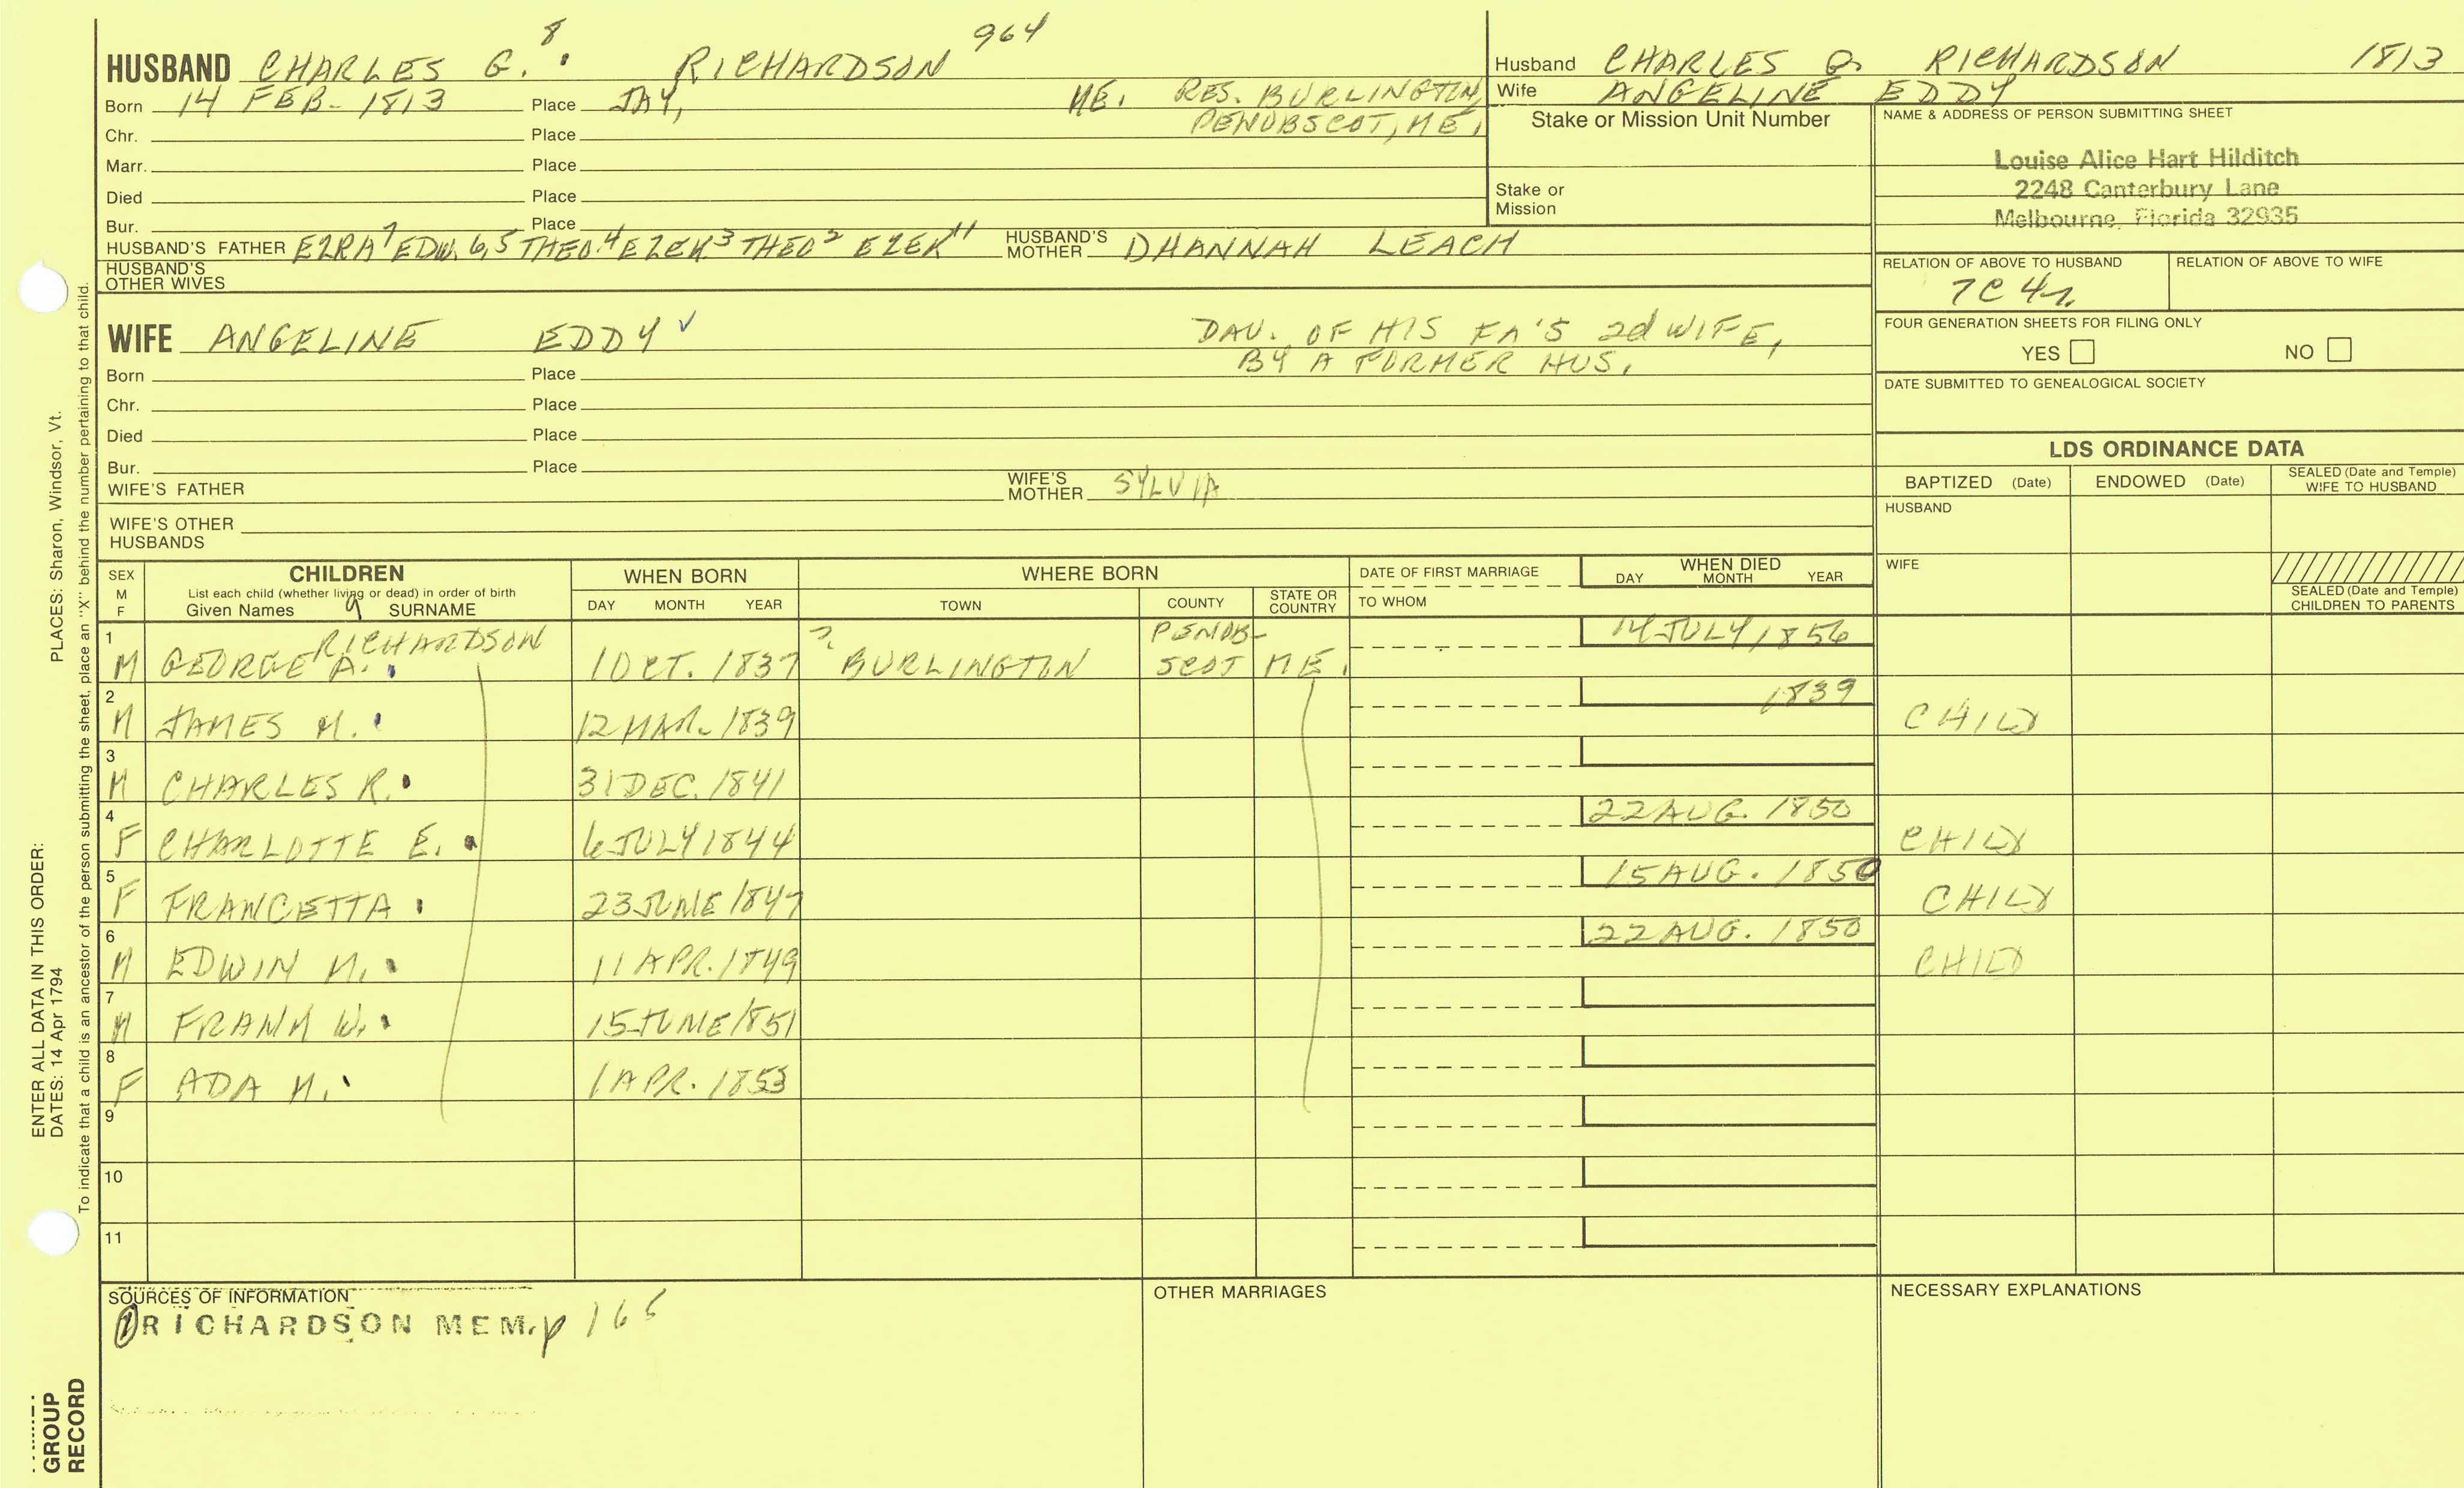 8 964
HUSBAND CHARLES G. RICHARDSON
Born 14 FEB- 1813 Place JAY, ME. RES. BURLINGTON,
PENOBSCOT, ME.
Chr. Place
Marr. Place
Died Place
Bur. Place
HUSBAND'S FATHER EZRA 7 EDW. 6,5 THEO. 4 EZEK. 3 THEO 2 EZEK 1 HUSBAND'S MOTHER DHANNAH LEACH
HUSBAND'S OTHER WIVES
WIFE ANGELINE EDDY ✓ DAU. OF HIS FA'S 2d WIFE,
BY A FORMER HUS.
Born Place
Chr. Place
Died Place
Bur. Place
WIFE'S FATHER WIFE'S MOTHER SYLVIA
WIFE'S OTHER HUSBANDS
Husband CHARLES G. RICHARDSON 1813
Wife ANGELINE EDDY
Stake or Mission Unit Number
Stake or Mission
NAME & ADDRESS OF PERSON SUBMITTING SHEET
Louise Alice Hart Hilditch
2248 Canterbury Lane
Melbourne, Florida 32935
RELATION OF ABOVE TO HUSBAND RELATION OF ABOVE TO WIFE
7C 4r.
FOUR GENERATION SHEETS FOR FILING ONLY
YES NO
DATE SUBMITTED TO GENEALOGICAL SOCIETY
LDS ORDINANCE DATA
BAPTIZED (Date) ENDOWED (Date) SEALED (Date and Temple) WIFE TO HUSBAND
HUSBAND
WIFE
SEALED (Date and Temple) CHILDREN TO PARENTS
SEX M F
CHILDREN
List each child (whether living or dead) in order of birth
Given Names 9 SURNAME
WHEN BORN
DAY MONTH YEAR
WHERE BORN
TOWN COUNTY STATE OR COUNTRY
DATE OF FIRST MARRIAGE
TO WHOM
WHEN DIED
DAY MONTH YEAR
1 RICHARDSON ? PENOB- 14 JULY 1856
M GEORGE A. 1 OCT. 1837 BURLINGTON SCOT ME.
2 1839
M JAMES M. 12 MAR. 1839 CHILD
3
M CHARLES R. 31 DEC. 1841
4 22 AUG. 1850
F CHARLOTTE E. 6 JULY 1844 CHILD
5 15 AUG. 1850
F FRANCETTA 23 JUNE 1847 CHILD
6 22 AUG. 1850
M EDWIN M. 11 APR. 1849 CHILD
7
M FRANK W. 15 JUNE 1851
8
F ADA M. 1 APR. 1853
9
10
11
SOURCES OF INFORMATION
1 RICHARDSON MEM. p 165
OTHER MARRIAGES
NECESSARY EXPLANATIONS
ENTER ALL DATA IN THIS ORDER:
DATES: 14 Apr 1794 PLACES: Sharon, Windsor, Vt.
To indicate that a child is an ancestor of the person submitting the sheet, place an "X" behind the number pertaining to that child.
GROUP
RECORD